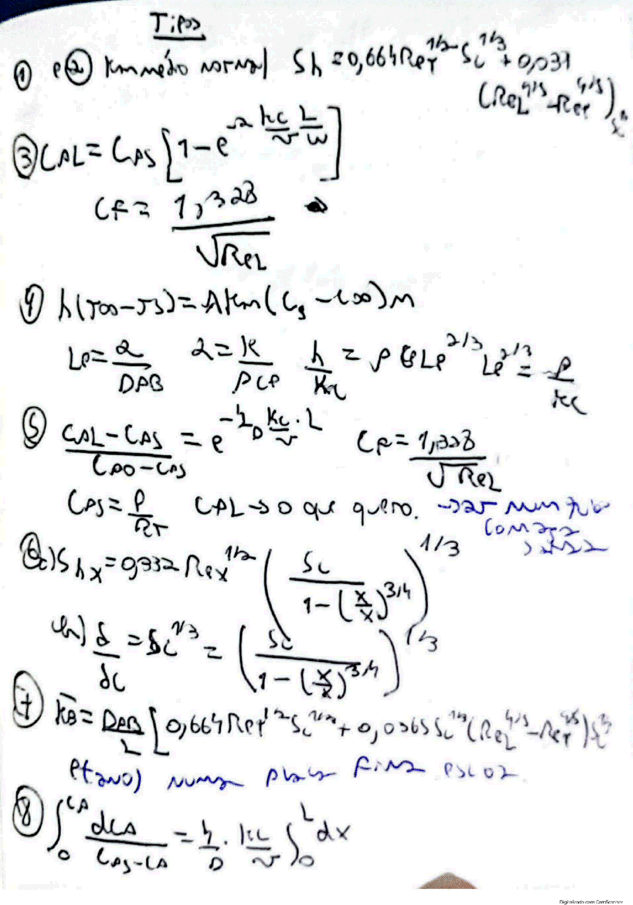 Tipos
① e ② Km médio normal Sh = 0,664 Re_T^1/2 Sc^1/3 + 0,037
(Re_L^4/5 - Re_T^4/5) Sc^1/3
③ C_AL = C_AS [1 - e^(-2 kc/v L/w)]
CF = 1,328 / √Re_L
④ h(T∞ - Ts) = λ km (Cs - C∞) M
Le = α/D_AB α = K/ρCp h/Kc = ρ Cp Le^2/3
⑤ (C_AL - C_AS)/(C_A0 - C_AS) = e^(-4/D kc/v · L) CF = 1,328/√Re_L
C_AS = P/RT C_AL → o que quero. → ar num tubo
com
⑥ a) Shx = 0,332 Rex^1/2 (Sc / (1 - (X/x)^3/4))^1/3
b) δ/δc = Sc^1/3 = (Sc / (1 - (X/x)^3/4))^1/3
⑦ k̄c = D_AB/L [0,664 Re_T^1/2 Sc^1/3 + 0,0365 Sc^1/3 (Re_L^4/5 - Re_T^4/5)]
etanol numa placa fina
⑧ ∫_0^CA dCA/(C_AS - CA) = 4/D · kc/v ∫_0^L dx
Digitalizado com CamScanner